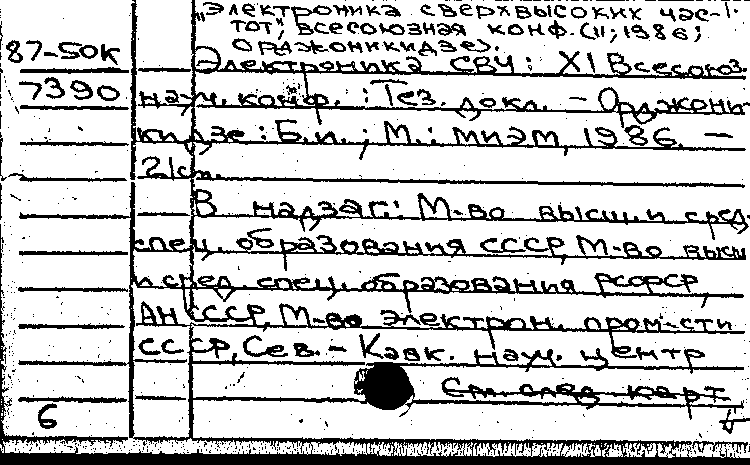 "Электроника сверхвысоких час-
тот", всесоюзная конф. (11; 1986;
Орджоникидзе).
87-50К Электроника СВЧ: XI Всесоюз.
7390 науч. конф. : Тез. докл. – Орджони-
кидзе : Б.и. ; М.: МИЭМ, 1986. –
21 см.
В надзаг.: М-во высш. и сред.
спец. образования СССР, М-во высш.
и сред. спец. образования РСФСР,
АН СССР, М-во электрон. пром-сти
СССР, Сев.-Кавк. науч. центр
См. след. карт.
6